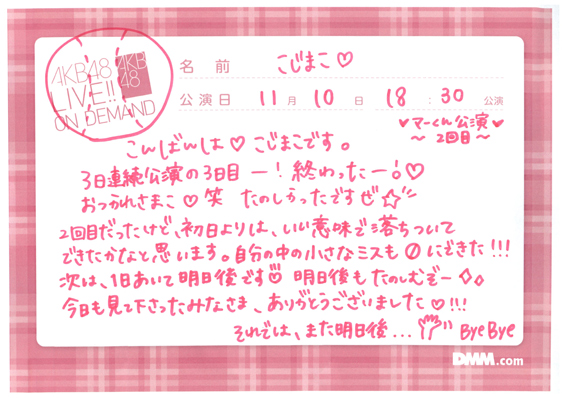 AKB48
LIVE!!
ON DEMAND
AKB
48
名前 こじまこ♡
公演日 11月10日 18:30公演
♥マーくん公演♥
～2回目～
こんばんは♡こじまこです。
3日連続公演の3日目ー!終わったー!♡
おつかれさまこ♡笑 たのしかったですぜ☆彡
2回目だったけど、初日よりは、いい意味で落ちついて
できたかなと思います。自分の中の小さなミスも0にできた!!!
次は、1日あいて明日後です♡ 明日後もたのしむぞー◇◇
今日も見て下さったみなさま、ありがとうございました♡!!!
それでは、また明日後... ByeBye
DMM.com